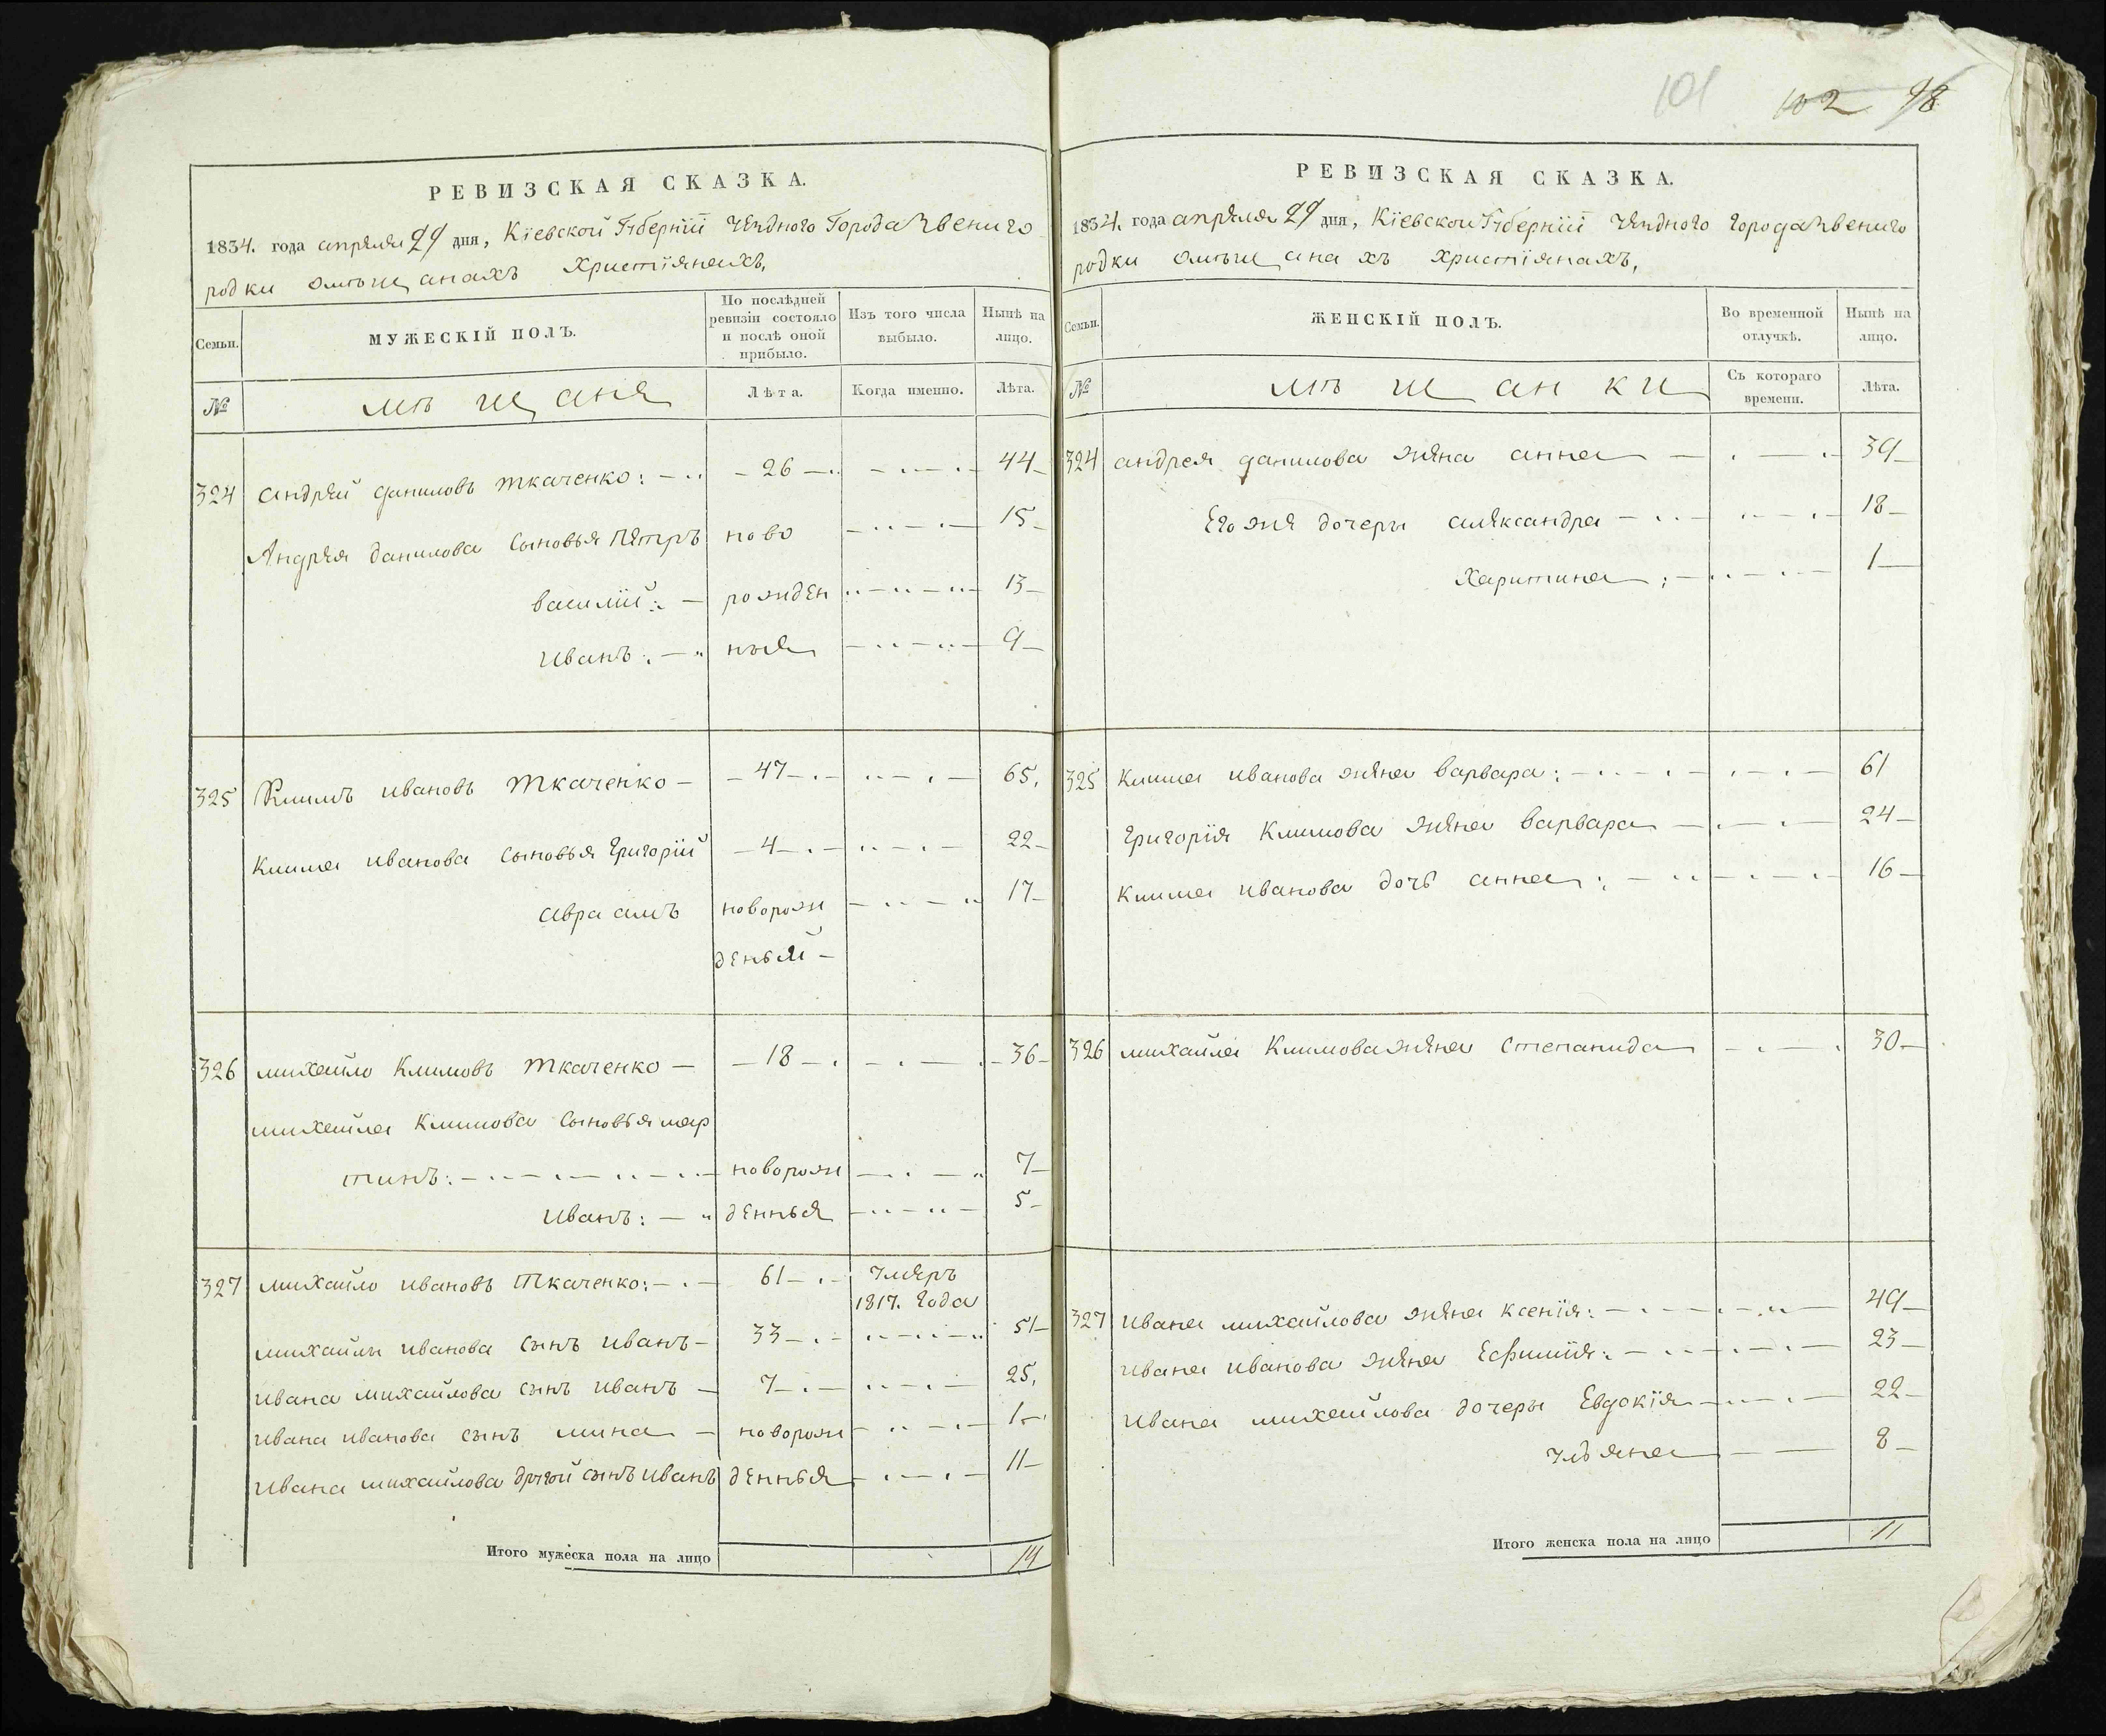 101 102 98
РЕВИЗСКАЯ СКАЗКА.
1834. года апреля 29 дня, Кіевской Губерніи Уезднаго Города Звениго
родки омѣщанахъ Христіянехъ,
Семьи.
МУЖЕСКІЙ ПОЛЪ.
По послѣдней ревизіи состояло и послѣ оной прибыло.
Изъ того числа выбыло.
Нынѣ на лицо.
№
мѣщане
Лѣта.
Когда именно.
Лѣта.
324 андрей даниловъ ткаченко: 26 44
Андрея данилова сыновья Петръ ново 15
василій: рожден 13
иванъ: ные 9
325 Климъ ивановъ Ткаченко 47 65,
Клима иванова сыновья Григорій 4 22
авраамъ новорож 17
деный
326 михайло Климовъ Ткаченко 18 36
михайла Климова сыновья мар
тинъ: новорож 7
иванъ: денные 5
327 михайло ивановъ Ткаченко: 61 умеръ
1817. года
михайлы иванова сынъ иванъ 33 51
ивана михайлова сынъ иванъ 7 25,
ивана иванова сынъ мина новорож 1
ивана михайлова другой сынъ иванъ денные 11
Итого мужеска пола на лицо 14
РЕВИЗСКАЯ СКАЗКА.
1834. года апреля 29 дня, Кіевской Губерніи Уезднаго города Звениго
родки омѣщанахъ христіянахъ,
Семьи.
ЖЕНСКІЙ ПОЛЪ.
Во временной отлучкѣ.
Нынѣ на лицо.
№
мѣщанки
Съ котораго времени.
Лѣта.
324 андрея данилова жена анна 39
Его же дочери александра 18
Харитина: 1
325 Клима иванова жена варвара: 61
Григорія Климова жена варвара 24
Клима иванова дочь анна: 16
326 михайла Климова жена степанида 30
327 ивана михайлова жена ксенія: 49
ивана иванова жена Ефимія: 23
ивана михайлова дочери Евдокія 22
ульяна 8
Итого женска пола на лицо 11